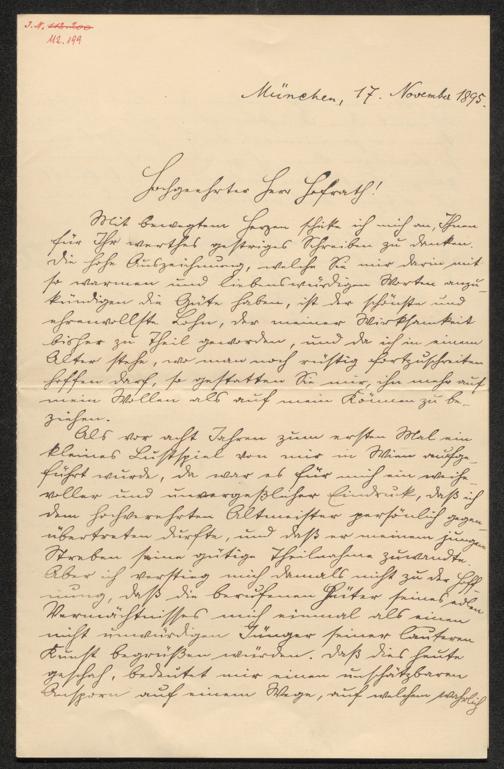 J. N. 112.200
112.199
München, 17. November 1895.
Hochgeehrter Herr Hofrath!
Mit bewegtem Herzen schicke ich mich an, Ihnen
für Ihr werthes gestriges Schreiben zu danken.
Die hohe Auszeichnung, welche Sie mir darin mit
so warmen und liebenswürdigen Worten anzu-
kündigen die Güte haben, ist der schönste und
ehrenvollste Lohn, der meiner Wirksamkeit
bisher zu Theil geworden, und da ich in einem
Alter stehe, wo man noch rüstig fortzuschreiten
hoffen darf, so gestatten Sie mir, ihn mehr auf
mein Wollen als auf mein Können zu be-
ziehen.
Als vor acht Jahren zum ersten Mal ein
kleines Lustspiel von mir in Wien aufge-
führt wurde, da war es für mich ein weihe-
voller und unvergeßlicher Eindruck, daß ich
dem hochverehrten Altmeister persönlich gegen-
übertreten durfte, und daß er meinem jungen
Streben seine gütige Theilnahme zuwandte.
Aber ich verstieg mich damals nicht zu der Hoff-
nung, daß die berufenen Hüter seines edlen
Vermächtnisses mich einmal als einen
nicht unwürdigen Jünger seiner lauteren
Kunst begrüßen würden. Daß dies heute
geschah, bedeutet mir einen unschätzbaren
Ansporn auf einem Wege, auf welchem wahrlich